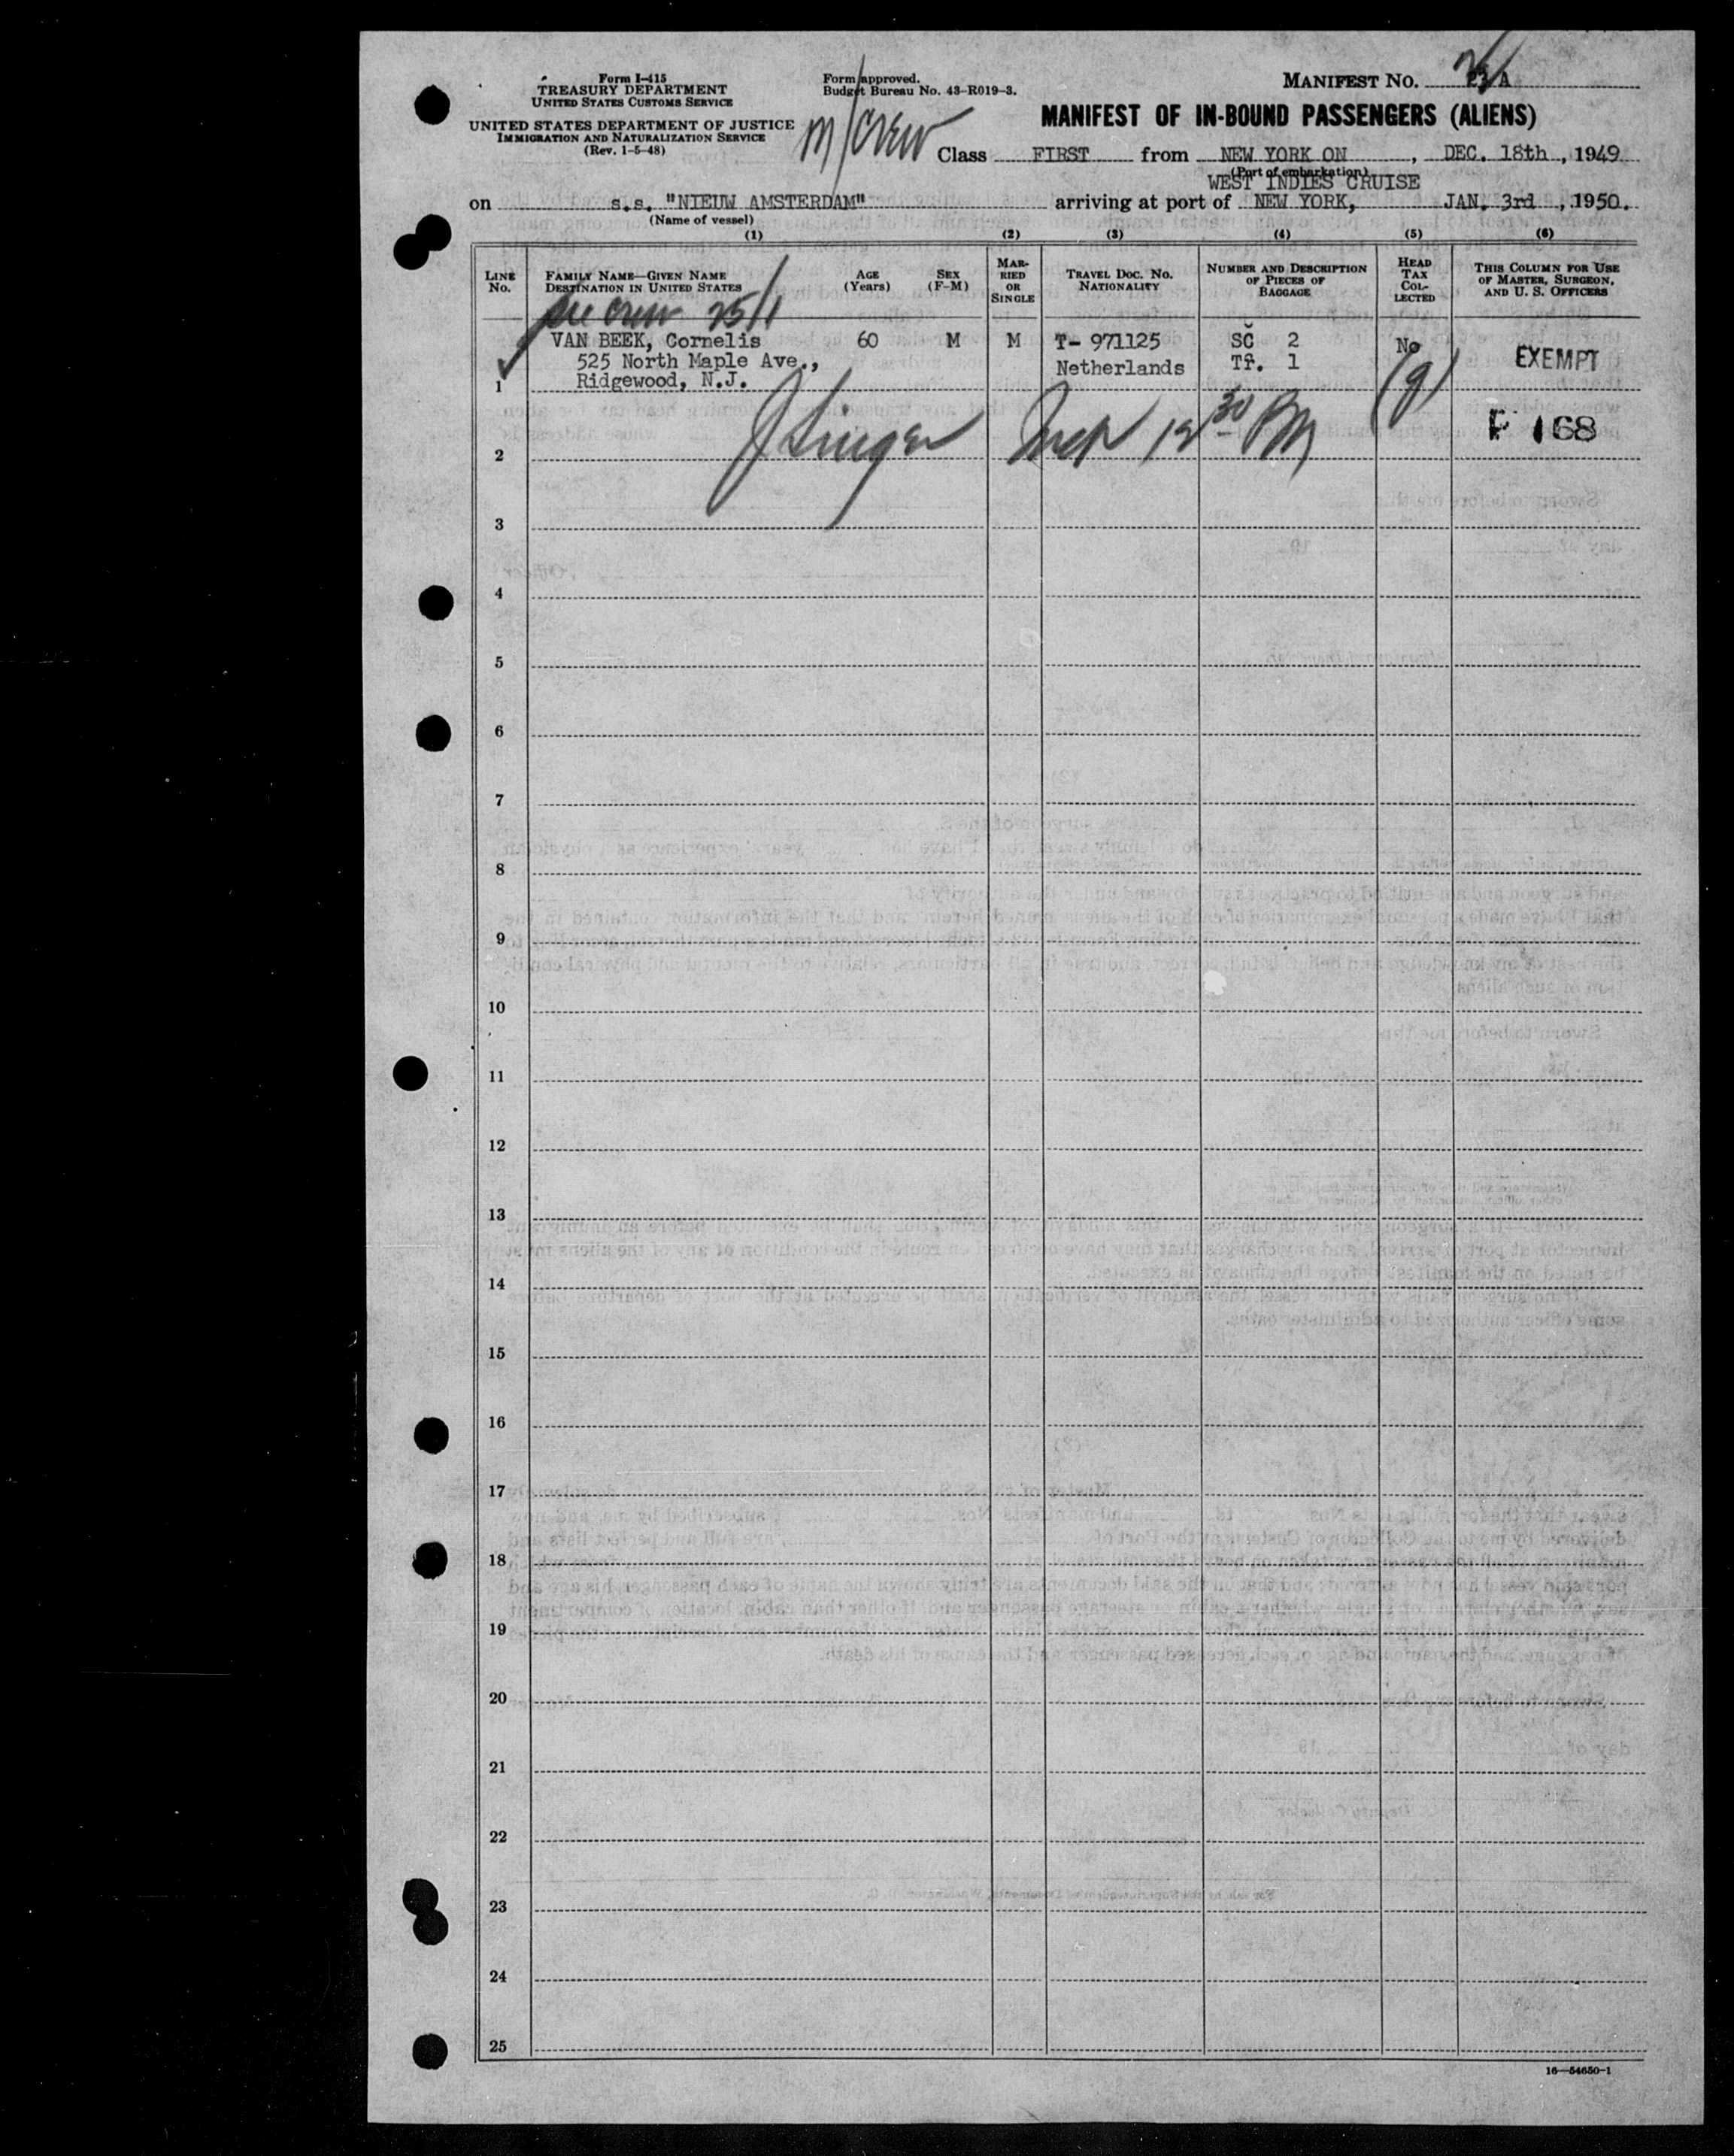 Form I-415
TREASURY DEPARTMENT
UNITED STATES CUSTOMS SERVICE
UNITED STATES DEPARTMENT OF JUSTICE
IMMIGRATION AND NATURALIZATION SERVICE
(Rev. 1-5-48)
Form approved.
Budget Bureau No. 43-R019-3.
m/crew
MANIFEST No. 23 A
MANIFEST OF IN-BOUND PASSENGERS (ALIENS)
Class FIRST from NEW YORK ON, DEC. 18th, 1949
(Port of embarkation)
WEST INDIES CRUISE
on s.s. "NIEUW AMSTERDAM" arriving at port of NEW YORK, JAN. 3rd, 1950.
(Name of vessel)
(1) (2) (3) (4) (5) (6)
LINE No.
FAMILY NAME—GIVEN NAME
DESTINATION IN UNITED STATES
AGE (Years)
SEX (F-M)
MARRIED OR SINGLE
TRAVEL DOC. No.
NATIONALITY
NUMBER AND DESCRIPTION OF PIECES OF BAGGAGE
HEAD TAX COLLECTED
THIS COLUMN FOR USE OF MASTER, SURGEON, AND U. S. OFFICERS
crew 25/1
VAN BEEK, Cornelis 60 M M T- 971125 SC 2 No EXEMPT
525 North Maple Ave., Netherlands Tr. 1 (g)
1 Ridgewood, N.J.
J Singer Insp 12 30 PM F 168
2
3
4
5
6
7
8
9
10
11
12
13
14
15
16
17
18
19
20
21
22
23
24
25
16—54650-1